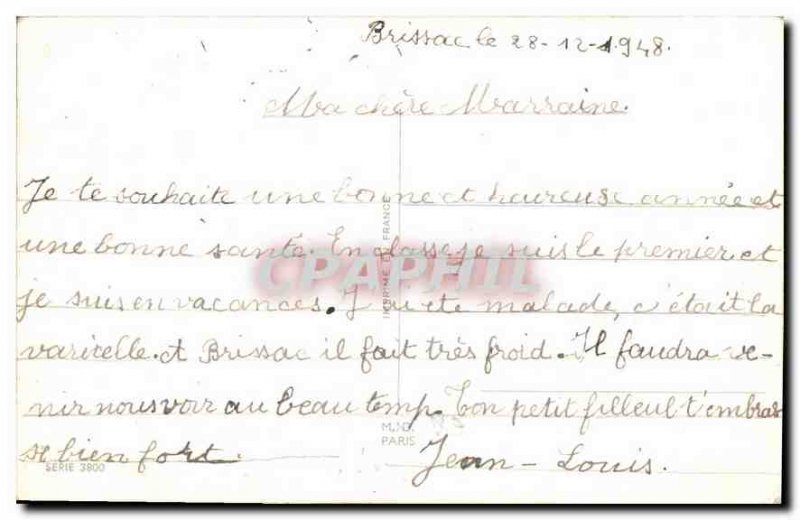 Brissac le 28-12-1948.
Ma chère Marraine.
Je te souhaite une bonne et heureuse année et
une bonne santé. En classe je suis le premier et
je suis en vacances. J'ai été malade, c'était la
varicelle. et Brissac il fait très froid. Il faudra ve-
nir nous voir au beau temp. Ton petit filleul t'embras
se bien fort.
Jean-Louis.
IMPRIMÉ EN FRANCE
M.D.
PARIS
SERIE 3800
CPAPHIL